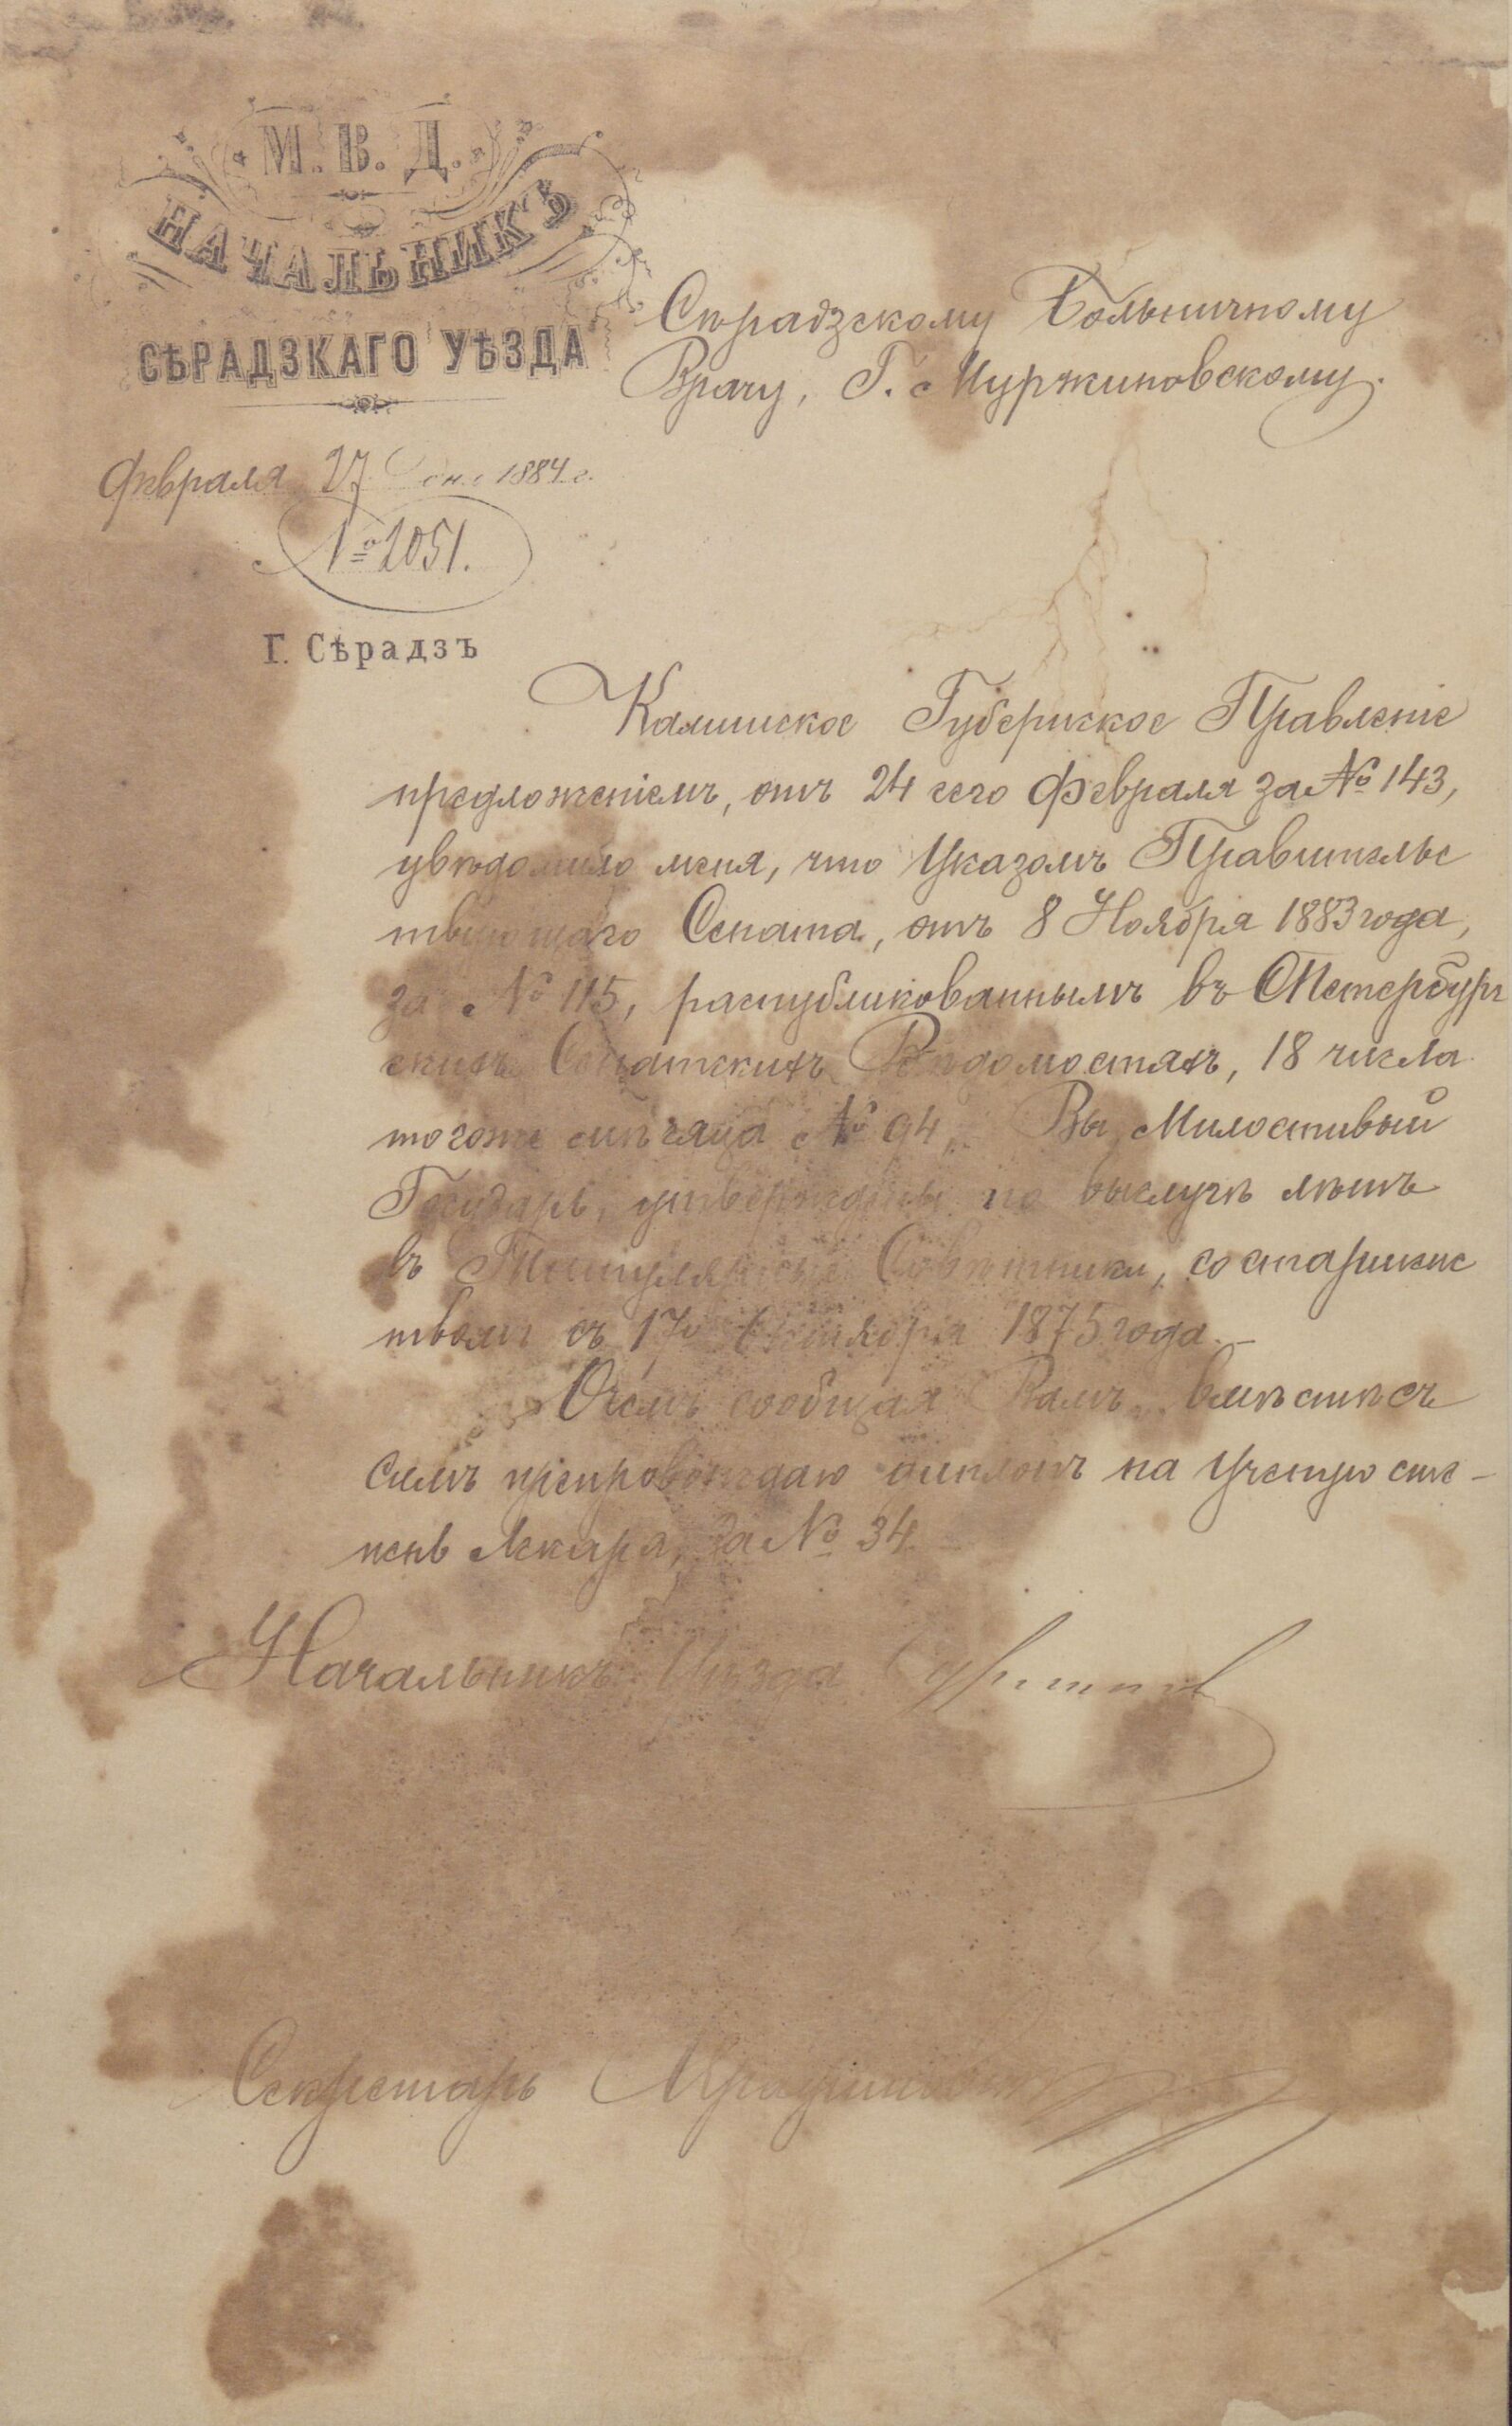 М. В. Д.
НАЧАЛЬНИКЪ
СѢРАДЗКАГО УѢЗДА
Февраля 27 дня 1884 г.
№ 1051.
Г. Сѣрадзъ
Сѣрадзскому Больничному
Врачу, Г. Муржиновскому.
Калишское Губернское Правленіе
предложеніемъ, отъ 24 сего Февраля за № 143,
увѣдомило меня, что Указомъ Правительс
твующаго Сената, отъ 8 Ноября 1883 года,
за № 115, распубликованнымъ въ СПетербург
скихъ Сенатскихъ Вѣдомостяхъ, 18 числа
тогоже мѣсяца № 94, Вы, Милостивый
Государь, утверждены по выслугѣ лѣтъ
въ Титулярные Совѣтники, со старшинс
твомъ съ 17 Октября 1875 года.
О чемъ сообщая Вамъ, вмѣстѣ съ
симъ препровождаю дипломъ на Ученую сте-
пень Лекаря, за № 34.
Начальникъ Уѣзда
Секретарь